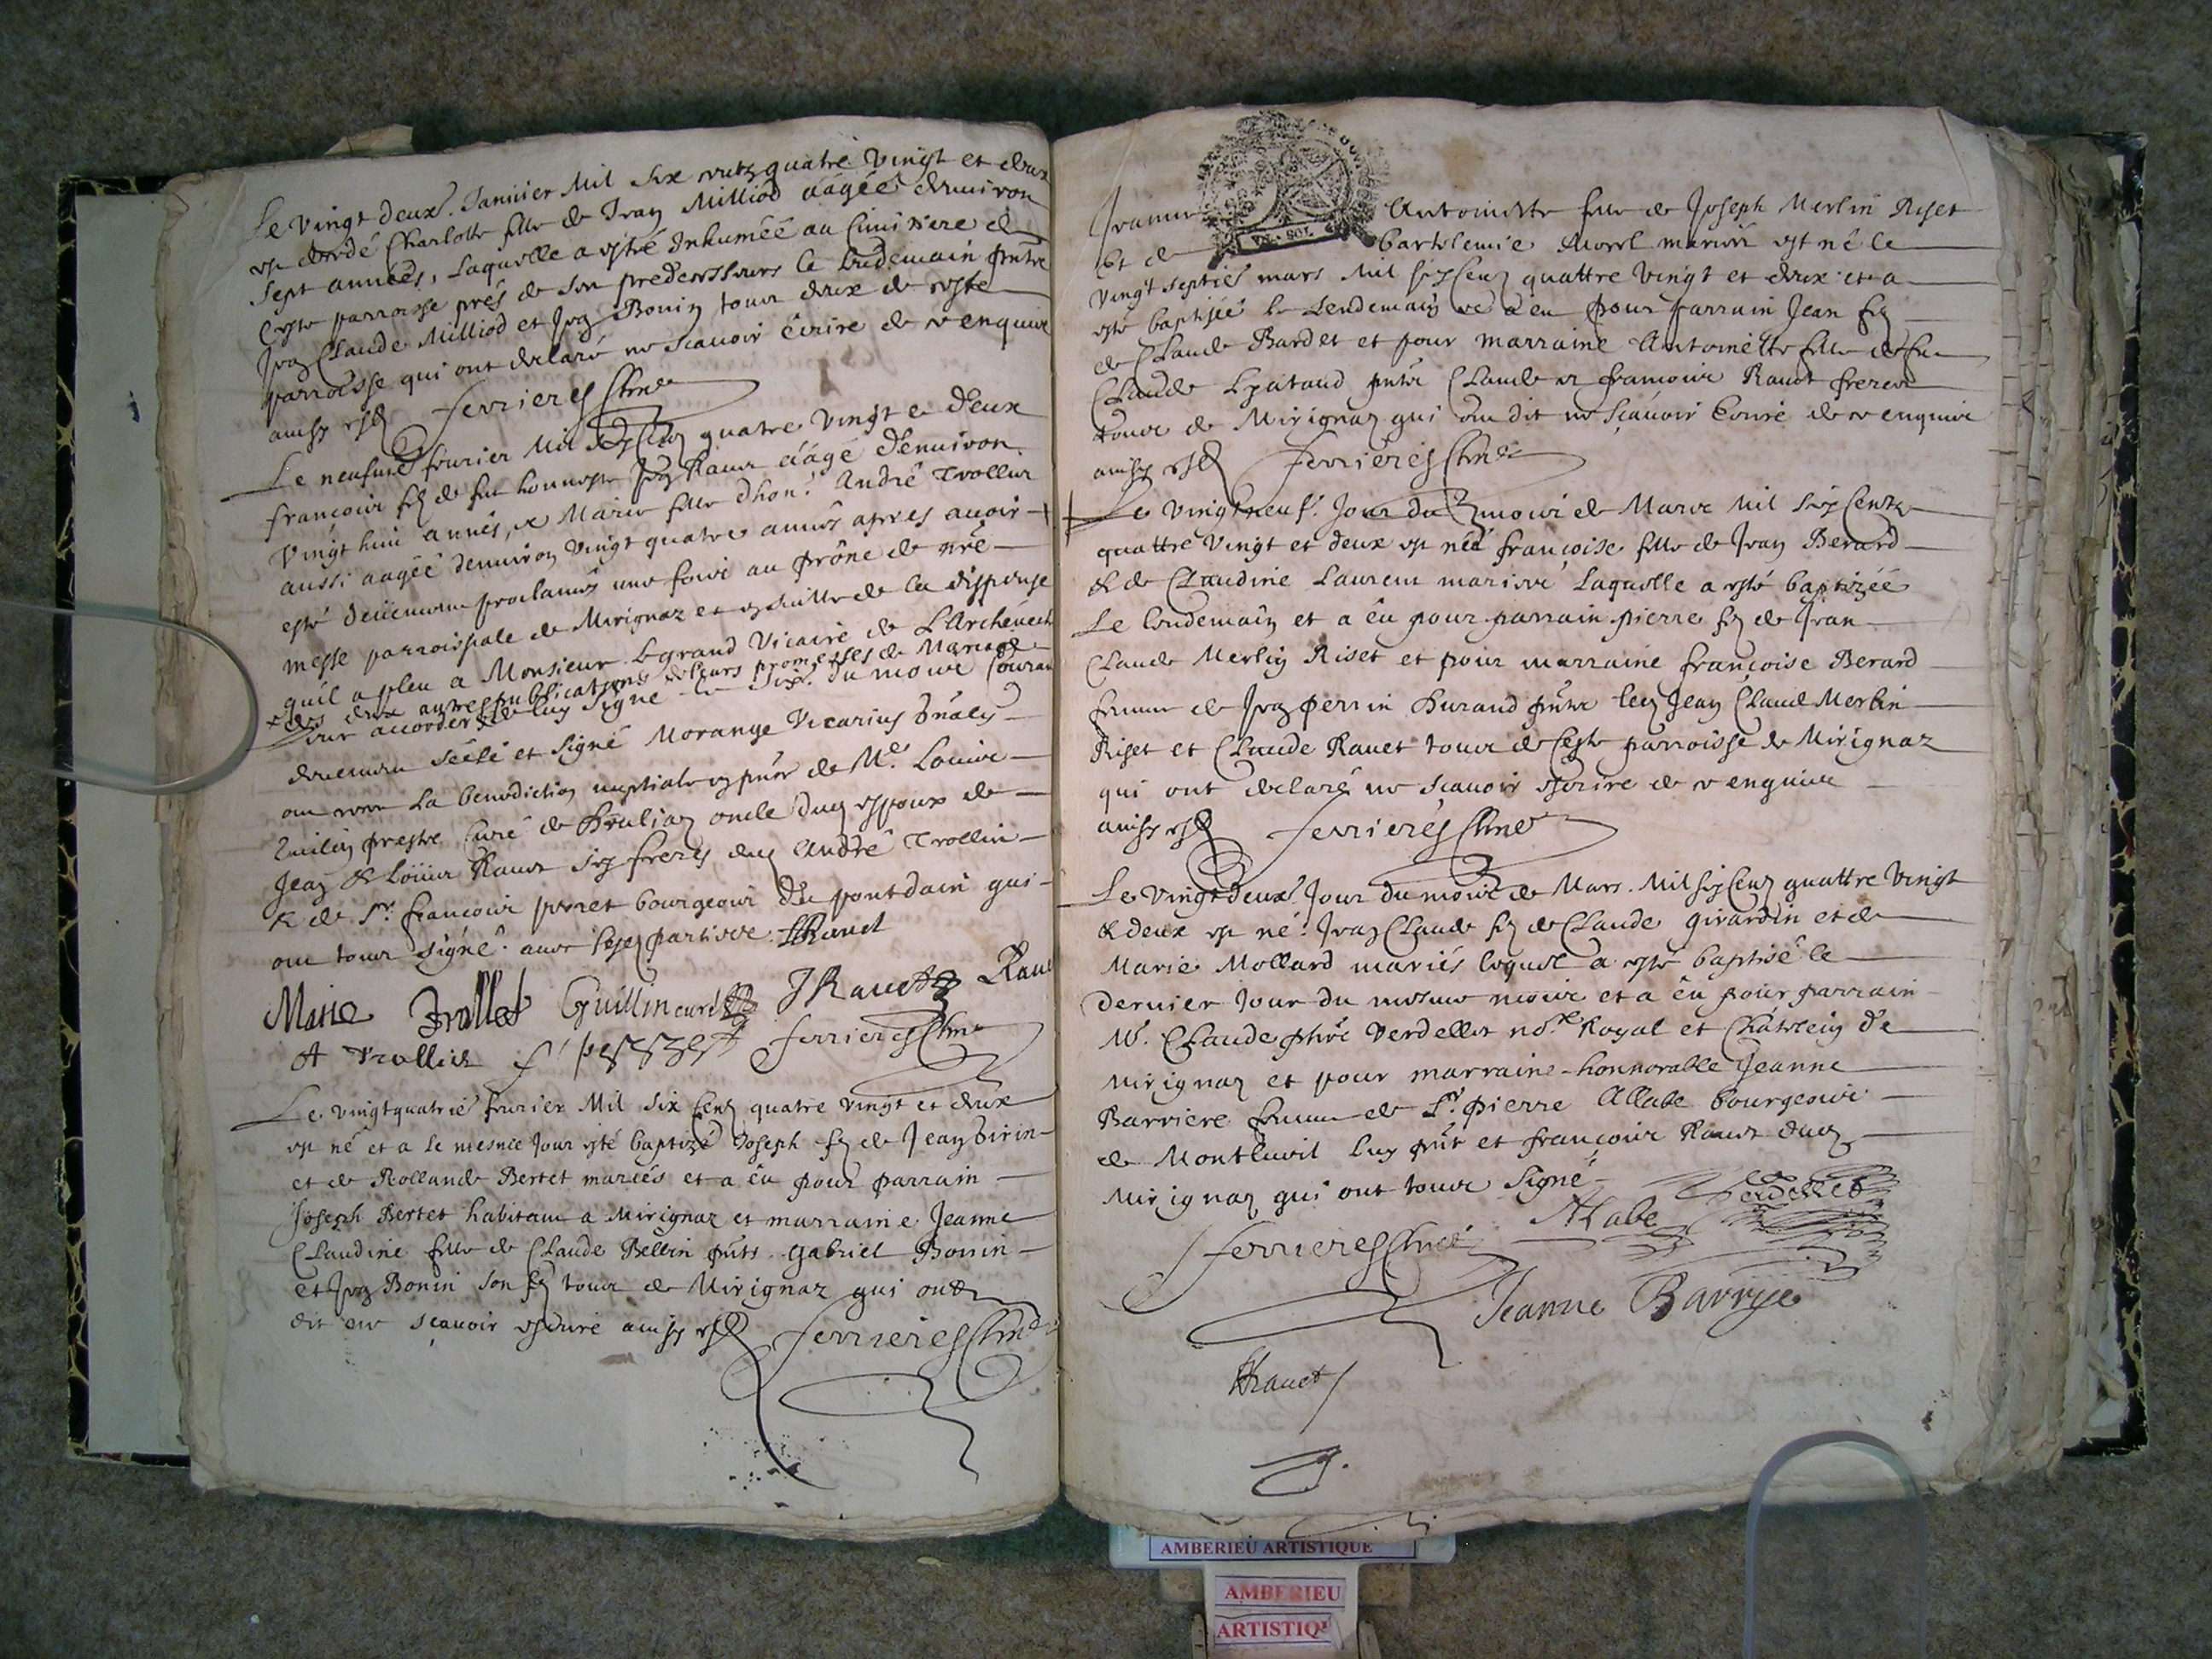 Le vingt deux.e Janvier Mil six cents quatre vingt et deux
est decedé Charlotte fille de Jean Milliod aagée d'environ
sept années, Laquelle a esté Inhumée au Cimitiere de
Ceste parroisse prés de ses predecesseurs le Lendemain pntz
Jean Claude Milliod et Jean Bonin tous deux de ceste
parroisse qui ont declaré ne scavoir écrire de ce enquis
ainsy est Ferrieres Curé
Le neufvie fevrier Mil six Cens quatre vingt e deux
francois fils de feu honneste Jean Ravet aâgé d'environ
vingt huit années, et Marie fille d'hon. André Trolliet
aussi aagée d'environ vingt quatre années apres avoir
esté deüement proclamés une fois au prône de nre
messe parroissiale de Mirignaz et ensuitte de la dispense
qu'il a pleu a Monsieur le grand Vicaire de L'Archeveché
des deux autres publications de leurs promesses de Mariage
leur accorder de luy signé le six.e du mois Couran
deuement scélé et signé Morange Vicarius gnalis
ont receu La benediction nuptiale en pnce de M.e Louis
Guillin prestre Curé de oncle dud espoux de
Jean & Loüis Ravet ses freres dud André Trollier
& de Sr. francois perret bourgeois du pont dain qui
ont tous signé avec lesd parties. FRavet
Marie Trollet Guillin curé JRavet Rave
A Trollier f perret Ferrieres Curé
Le vingt quatrie fevrier Mil six Cens quatre vingt et deux
est né et a le mesme Jour esté baptizé Joseph fils de Jean
et de Rollande Bertet mariés et a éu pour parrain
Joseph Bertet habitant a Mirignaz et marraine Jeanne
Claudine fille de Claude Bellin pnts Gabriel Bonin
et Jean Bonin son fils tous de Mirignaz qui ont
dit ne sçavoir escrire ainsy est Ferrieres Curé
Jeanne Antoinette fille de Joseph Merlin Riset
Et de Bartolemie Morel mariés est né le
vingt septie mars Mil six Cens quattre vingt et deux et a
esté baptisée le Lendemain et a eu pour parrain Jean fils
de Claude Bardet et pour marraine Antoinette fille de feu
Claude pntz Claude et francois Ravet freres
tous de Mirignaz qui ont dit ne sçavoir Ecrire de ce enquis
ainsy est Ferrieres Curé
Le vingt neuf. Jour du mois de Mars Mil six Cents
quattre vingt et deux est née francoise fille de Jean Berard
& de Claudine Laurent mariés Laquelle a esté baptizée
Le Lendemain et a éu pour parrain pierre fils de Jean
Claude Merlin Riset et pour marraine francoise Berard
femme de Jean perrin Durand pntz led Jean Claude Merlin
Riset et Claude Ravet tous de Ceste parroisse de Mirignaz
qui ont declaré ne scavoir escrire de ce enquis
ainsy est Ferrieres Curé
Le vingt deux.e Jour du mois de Mars. Mil six Cens quattre vingt
& deux est né. Jean Claude fils de Claude Girardin et de
Marie Mollard mariés lequel a esté baptisé le
dernier Jour du mesme mois et a éu pour parrain
M.e Claude Verdellet no.re Royal et Châtelain de
Mirignaz et pour marraine honnorable Jeanne
Barriere femme de Sr. pierre Allabe bourgeois
de Montluel luy pnt et francois Ravet dud
Mirignaz qui ont tous signé
Verdellet
Ferrieres Curé ALabe
Jeanne Barriye
FRavet
AMBERIEU ARTISTIQUE
AMBERIEU
ARTISTIQ